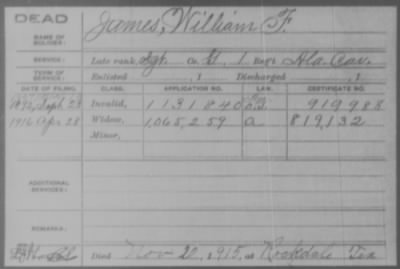 DEAD
James, William F.
NAME OF SOLDIER:
SERVICE: Late rank, Sgt Co. G, 1 Reg't Ala. Cav.
TERM OF SERVICE: Enlisted , 1 Discharged , 1
DATE OF FILING. CLASS. APPLICATION NO. LAW. CERTIFICATE NO.
1892, Sept 23 Invalid, 1131840 919988
1916 Apr 28 Widow, 1,065,259 a 819,132
Minor,
ADDITIONAL SERVICES:
REMARKS:
Died Nov 20, 1915, at Rockdale Tex